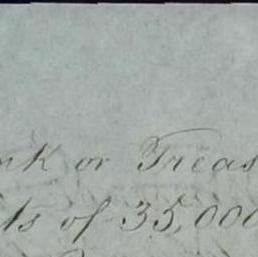 nk or Treas
ts of 35,000